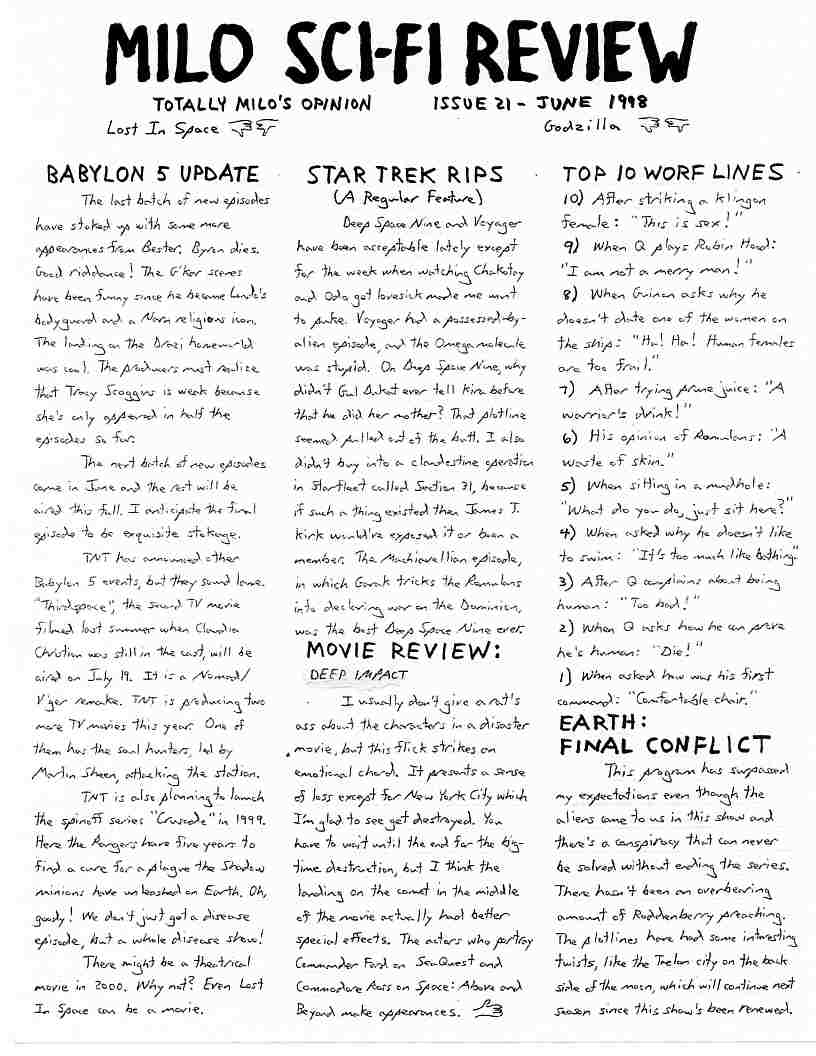 MILO SCI-FI REVIEW
TOTALLY MILO'S OPINION ISSUE 21 - JUNE 1998
Lost In Space Godzilla
BABYLON 5 UPDATE
The last batch of new episodes
have stoked up with some more
appearances from Bester. Byron dies.
Good riddance! The G'Kar scenes
have been funny since he became Londo's
bodyguard and a Narn religious icon.
The landing on the Drazi homeworld
was cool. The producers must realize
that Tracy Scoggins is weak because
she's only appeared in half the
episodes so far.
The next batch of new episodes
come in June and the rest will be
aired this fall. I anticipate the final
episode to be exquisite stokage.
TNT has announced other
Babylon 5 events, but they sound lame.
"Thirdspace", the second TV movie
filmed last summer when Claudia
Christian was still in the cast, will be
aired on July 19. It is a Nomad/
V'ger remake. TNT is producing two
more TV movies this year. One of
them has the soul hunters, led by
Martin Sheen, attacking the station.
TNT is also planning to launch
the spinoff series "Crusade" in 1999.
Here the Rangers have five years to
find a cure for a plague the Shadow
minions have unleashed on Earth. Oh,
goody! We don't just get a disease
episode, but a whole disease show!
There might be a theatrical
movie in 2000. Why not? Even Lost
In Space can be a movie.
STAR TREK RIPS
(A Regular Feature)
Deep Space Nine and Voyager
have been acceptable lately except
for the week when watching Chakotay
and Odo get lovesick made me want
to puke. Voyager had a possessed-by-
alien episode, and the Omega molecule
was stupid. On Deep Space Nine, why
didn't Gul Dukat ever tell Kira before
that he did her mother? That plotline
seemed pulled out of the butt. I also
didn't buy into a clandestine operation
in Starfleet called Section 31, because
if such a thing existed then James T.
Kirk would've exposed it or been a
member. The Machiavellian episode,
in which Garak tricks the Romulans
into declaring war on the Dominion,
was the best Deep Space Nine ever.
MOVIE REVIEW:
DEEP IMPACT
I usually don't give a rat's
ass about the characters in a disaster
movie, but this flick strikes an
emotional chord. It presents a sense
of loss except for New York City which
I'm glad to see get destroyed. You
have to wait until the end for the big-
time destruction, but I think the
landing on the comet in the middle
of the movie actually had better
special effects. The actors who portray
Commander Ford on SeaQuest and
Commodore Ross on Space: Above and
Beyond make appearances.
TOP 10 WORF LINES
10) After striking a Klingon
female: "This is sex!"
9) When Q plays Robin Hood:
"I am not a merry man!"
8) When Guinan asks why he
doesn't date one of the women on
the ship: "Ha! Ha! Human females
are too frail."
7) After trying prune juice: "A
warrior's drink!"
6) His opinion of Romulans: "A
waste of skin."
5) When sitting in a mudhole:
"What do you do, just sit here?"
4) When asked why he doesn't like
to swim: "It's too much like bathing."
3) After Q complains about being
human: "Too bad!"
2) When Q asks how he can prove
he's human: "Die!"
1) When asked how was his first
command: "Comfortable chair."
EARTH:
FINAL CONFLICT
This program has surpassed
my expectations even though the
aliens came to us in this show and
there's a conspiracy that can never
be solved without ending the series.
There hasn't been an overbearing
amount of Roddenberry preaching.
The plotlines have had some interesting
twists, like the Taelon city on the back
side of the moon, which will continue next
season since this show's been renewed.